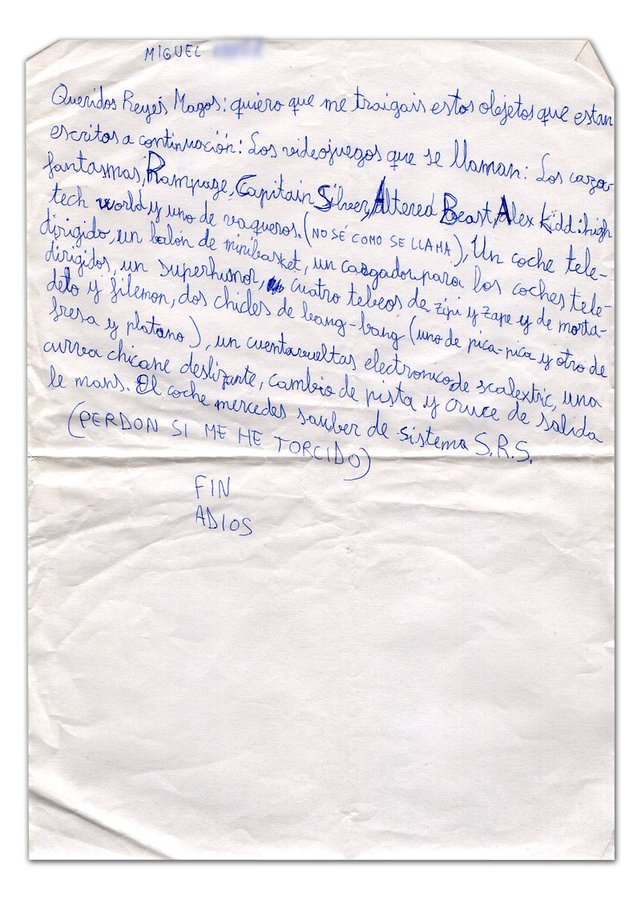 MIGUEL
Queridos Reyes Magos: quiero que me traigais estos objetos que estan
escritos a continuación: Los videojuegos que se llaman: Los caza-
fantasmas, Rampage, Capitain Silver, Altered Beast, Alex Kidd:high
tech world y uno de vaqueros. (NO SÉ COMO SE LLAMA), Un coche tele-
dirigido, un balon de minibasket, un cargador para los coches tele-
dirigidos, un superhumor, cuatro tebeos de zipi y zape y de morta-
delo y filemon, dos chicles de bang-bang (uno de pica-pica y otro de
fresa y platano), un cuentavueltas electronico de scalextric, una
curva chicane deslizante, cambio de pista y cruce de salida
le mans. El coche mercedes sauber de sistema S.R.S.
(PERDON SI ME HE TORCIDO)
FIN
ADIOS